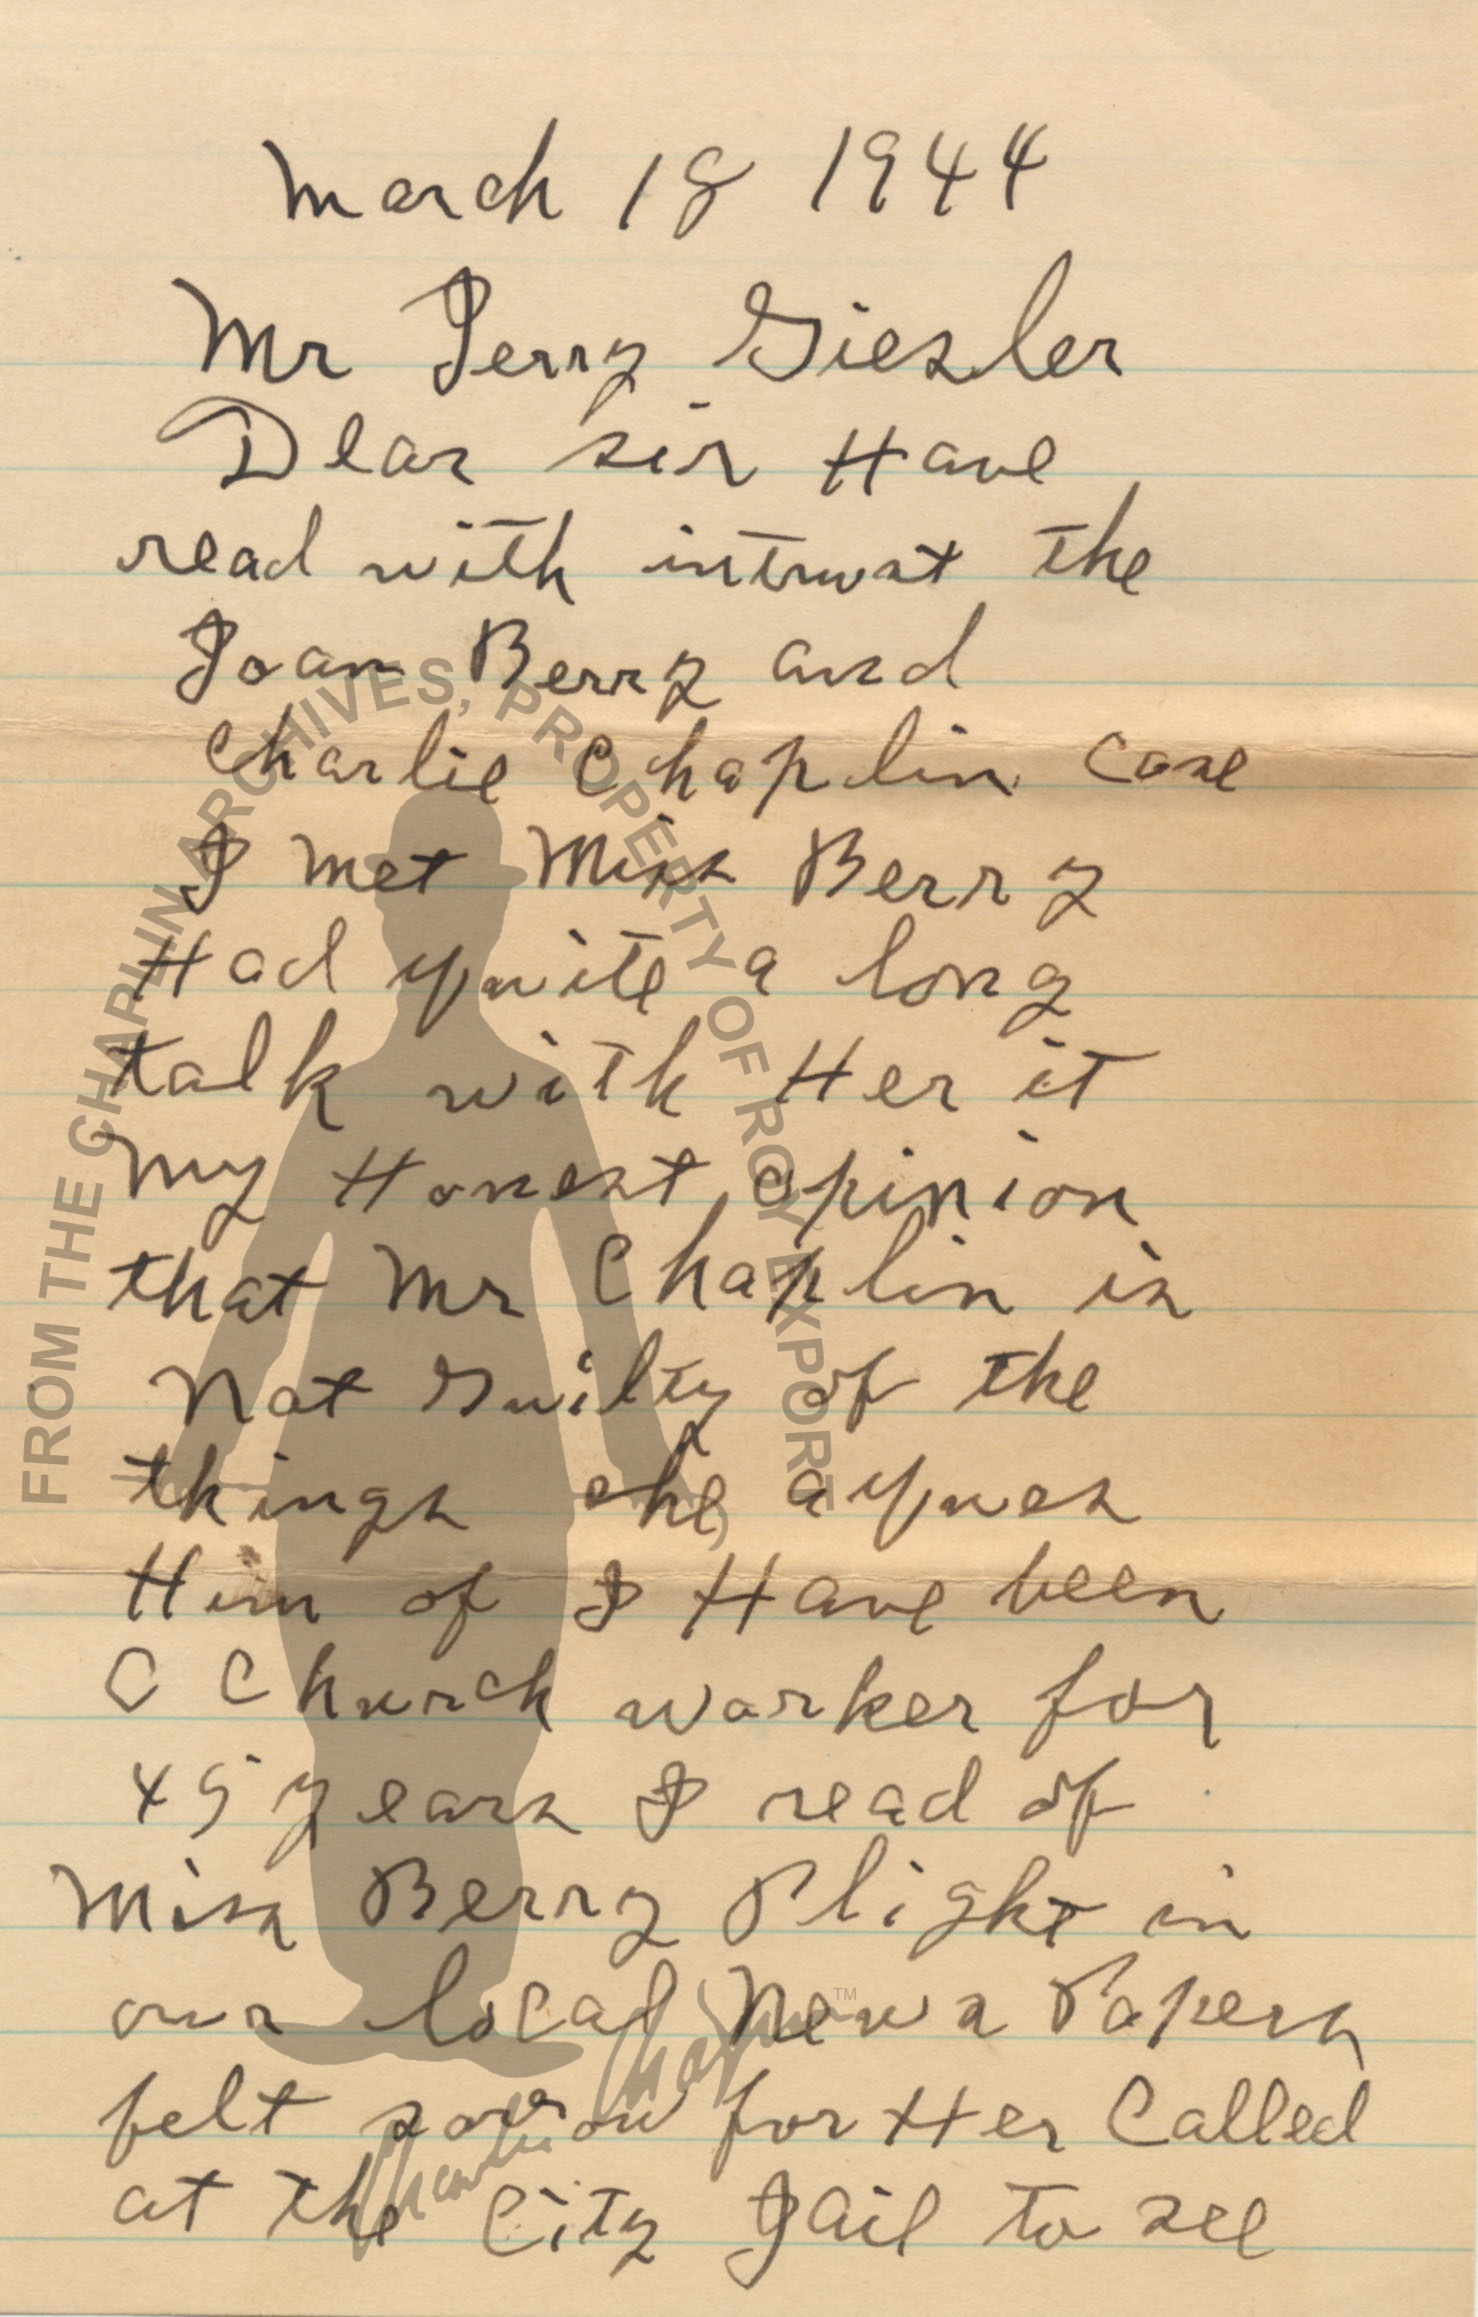 March 18 1944
Mr Jerry Giesler
Dear sir Have
read with intrust the
Joan Berry and
Charlie Chaplin case
I met Miss Berry
Had quite a long
talk with Her it
my Honest opinion
that Mr Chaplin is
Not Guilty of the
things she aques
Him of I Have been
a Church worker for
45 years I read of
Miss Berry Plight in
our local News Papers
felt sorrow for Her Called
at the City Jail to see
FROM THE CHAPLIN ARCHIVES, PROPERTY OF ROY EXPORT
Charlie Chaplin
TM